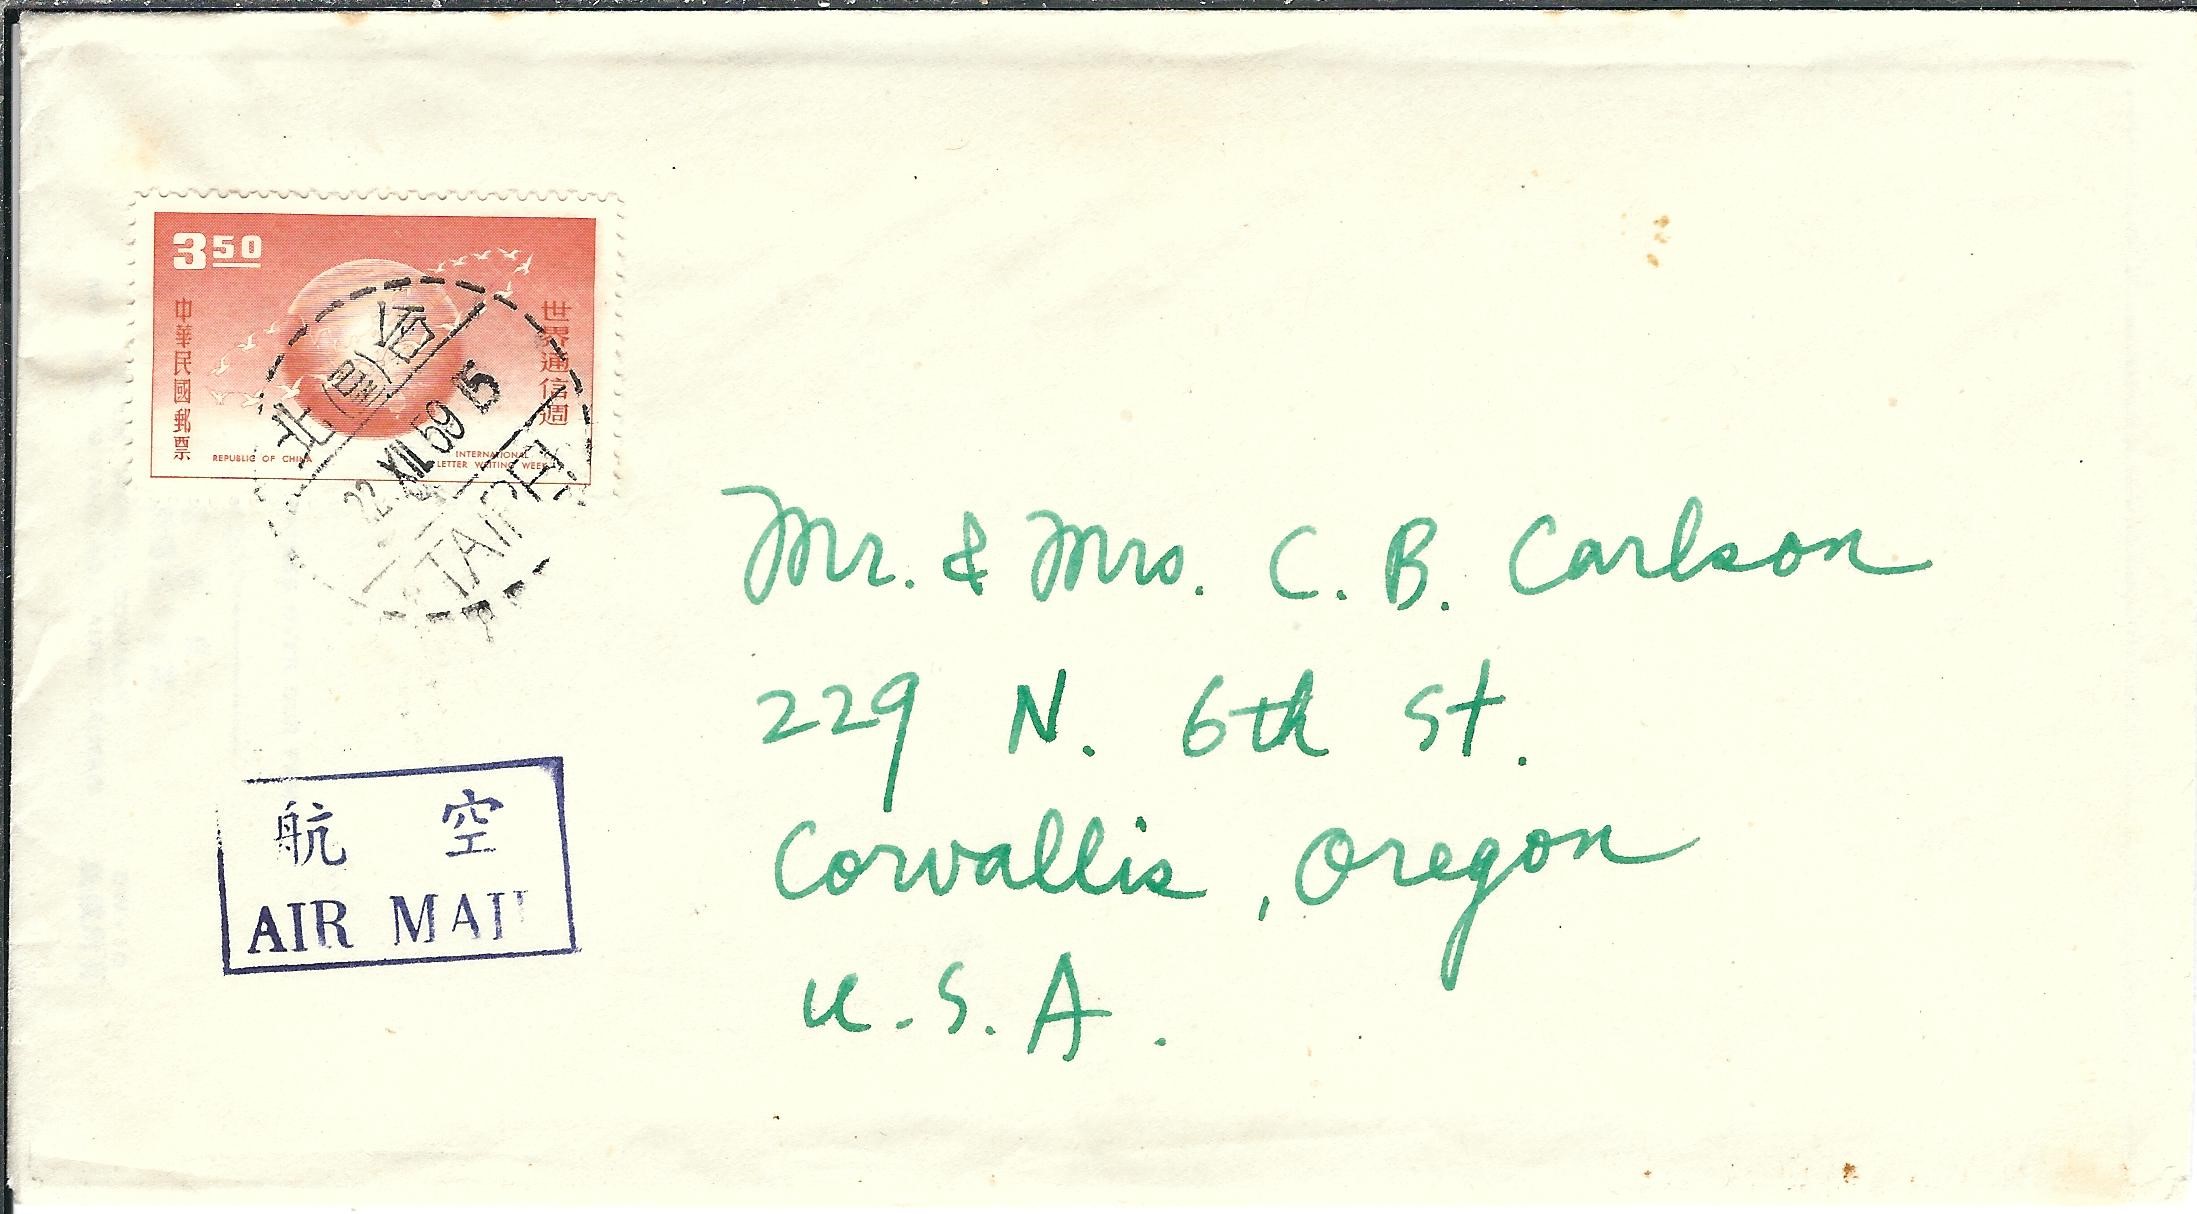 3 50
中華民國郵票
世界通信週
REPUBLIC OF CHINA
INTERNATIONAL
LETTER WRITING WEEK
台北
22 XII 59 15
TAIPEI
航 空
AIR MAIL
Mr. & Mrs. C. B. Carlson
229 N. 6th St.
Corvallis, Oregon
U.S.A.